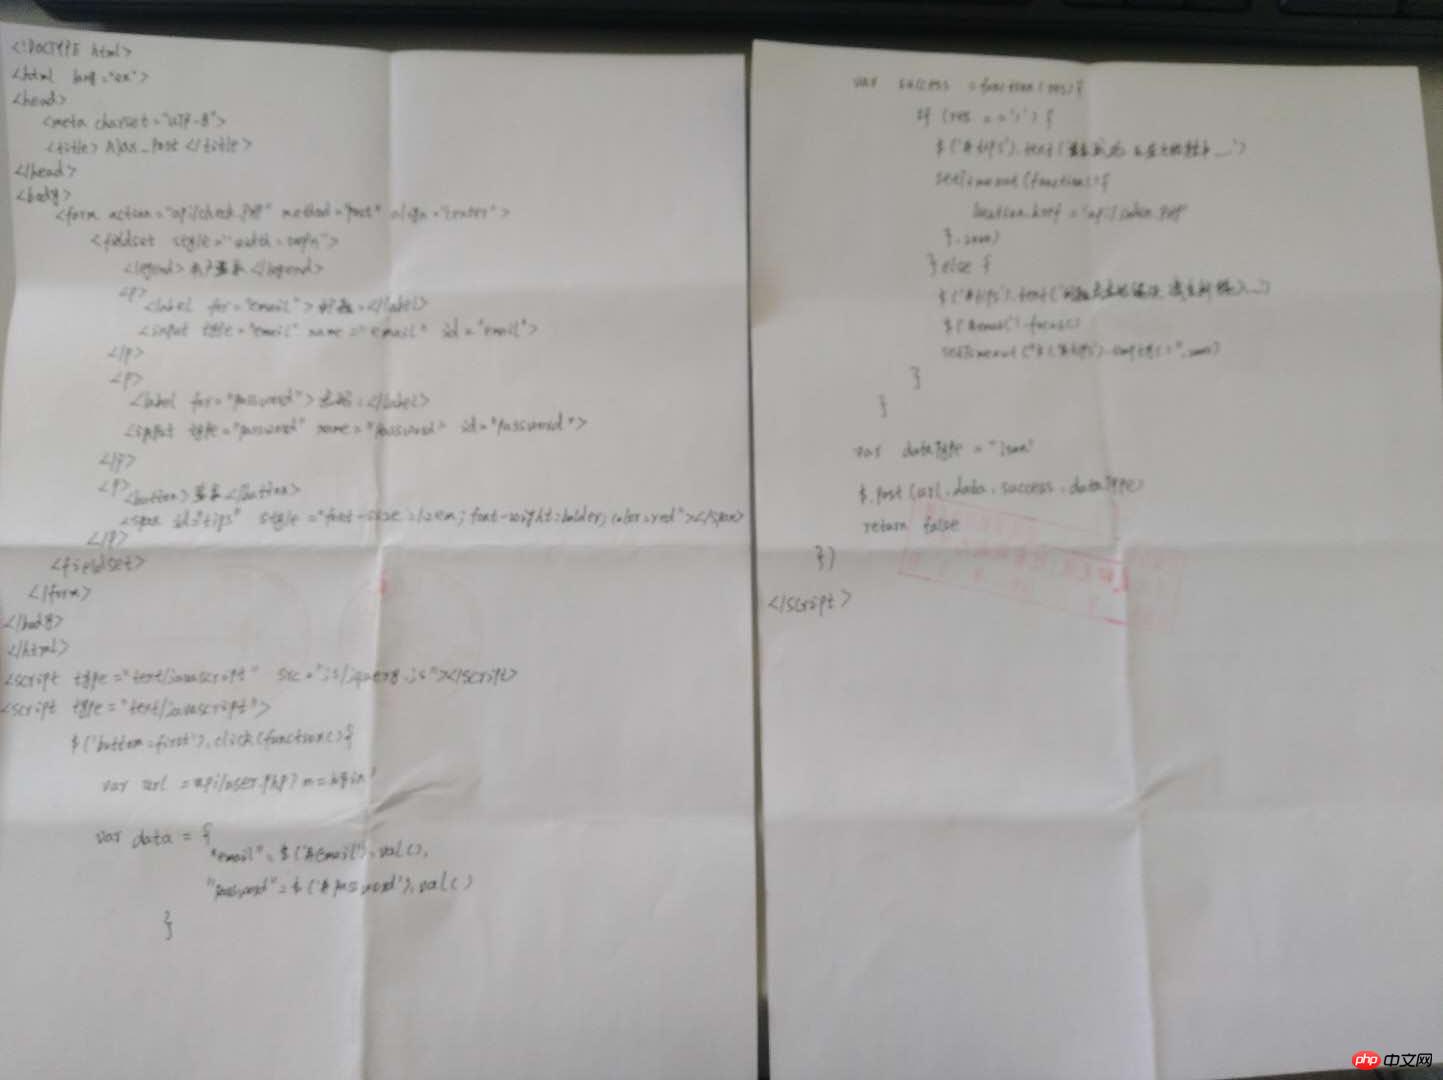 <!DOCTYPE html>
<html lang="en">
<head>
<meta charset="UTF-8">
<title>Ajax_Post</title>
</head>
<body>
<form action="api/check.php" method="post" align="center">
<fieldset style="">
<legend>用户登录</legend>
<p>
<label for="email">邮箱:</label>
<input type="email" name="email" id="email">
</p>
<p>
<label for="password">密码:</label>
<input type="password" name="password" id="password">
</p>
<p>
<button>登录</button>
<span id="tips" style="font-size:1.2em; font-weight:bolder; color:red"></span>
</p>
<fieldset>
</form>
</body>
</html>
<script type="text/javascript" src="js/jquery.js"></script>
<script type="text/javascript">
$('button:first').click(function(){
var url = api/user.php?m=login'
var data = {
"email": $('#email').val(),
"password": $('#password').val()
}
var success = function(res){
if (res == '1') {
$('#tips').text('登录成功,
setTimeout(function(){
location.href = 'api/
},2000)
}else {
$('#tips').text('邮箱或密码错误,请重新输入...')
$('#email').focus()
setTimeout("$('#tips').empty()",2000)
}
}
var dataType = 'json'
$.post(url,data,success,dataType)
return false
})
</script>
php 中文网